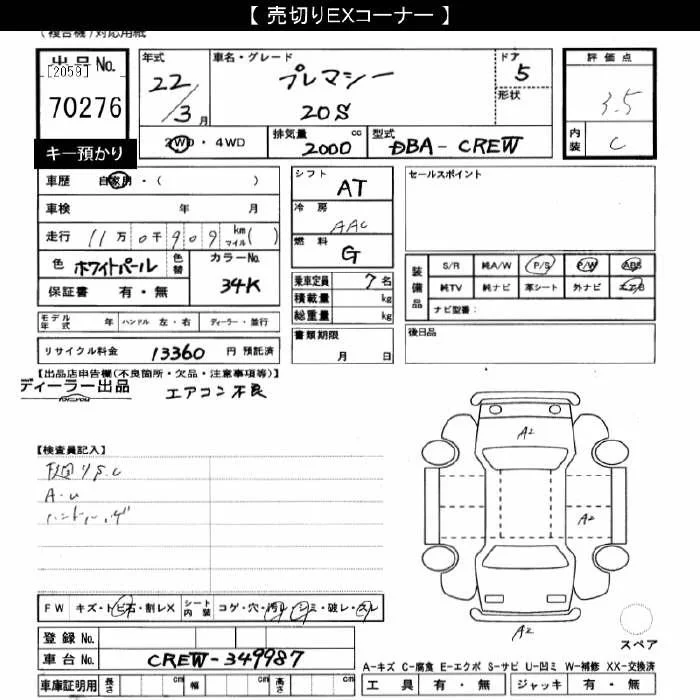 【 売切りEXコーナー 】
(複合機)対応用紙
出品No.
[2059]
70276
キー預かり
年式
22/3月
車名・グレード
プレマシー
20S
ドア
5
形状
評価点
3.5
内装
C
2WD・4WD
排気量
2000 cc
型式
DBA-CREW
車歴 自家用・( )
車検 年 月
走行 11万0千909 km マイル( )
色 ホワイトパール
色替
カラーNo.
34K
保証書 有・無
シフト
AT
冷房
AAC
燃料
G
乗車定員 7名
積載量 kg
総重量 kg
セールスポイント
装備品
S/R 純A/W P/S P/W ABS
純TV 純ナビ 革シート 外ナビ エアB
ナビ型番:
モデル年式 年 ハンドル 左・右 ディーラー・並行
書類期限
月 日
後日品
リサイクル料金 13360 円 預託済
【出品店申告欄(不良箇所・欠品・注意事項等)】
ディーラー出品
エアコン不良
【検査員記入】
A・U
A2
A2
A2
FW キズ・トビ石・割レX
シート内装
コゲ・穴・汚レ・シミ・破レ・スレ
登録No.
車台No. CREW-349987
スペア
A-キズ C-腐食 E-エクボ S-サビ U-凹ミ W-補修 XX-交換済
車庫証明用 長さ cm 幅 cm 高さ cm
工具 有・無 ジャッキ 有・無